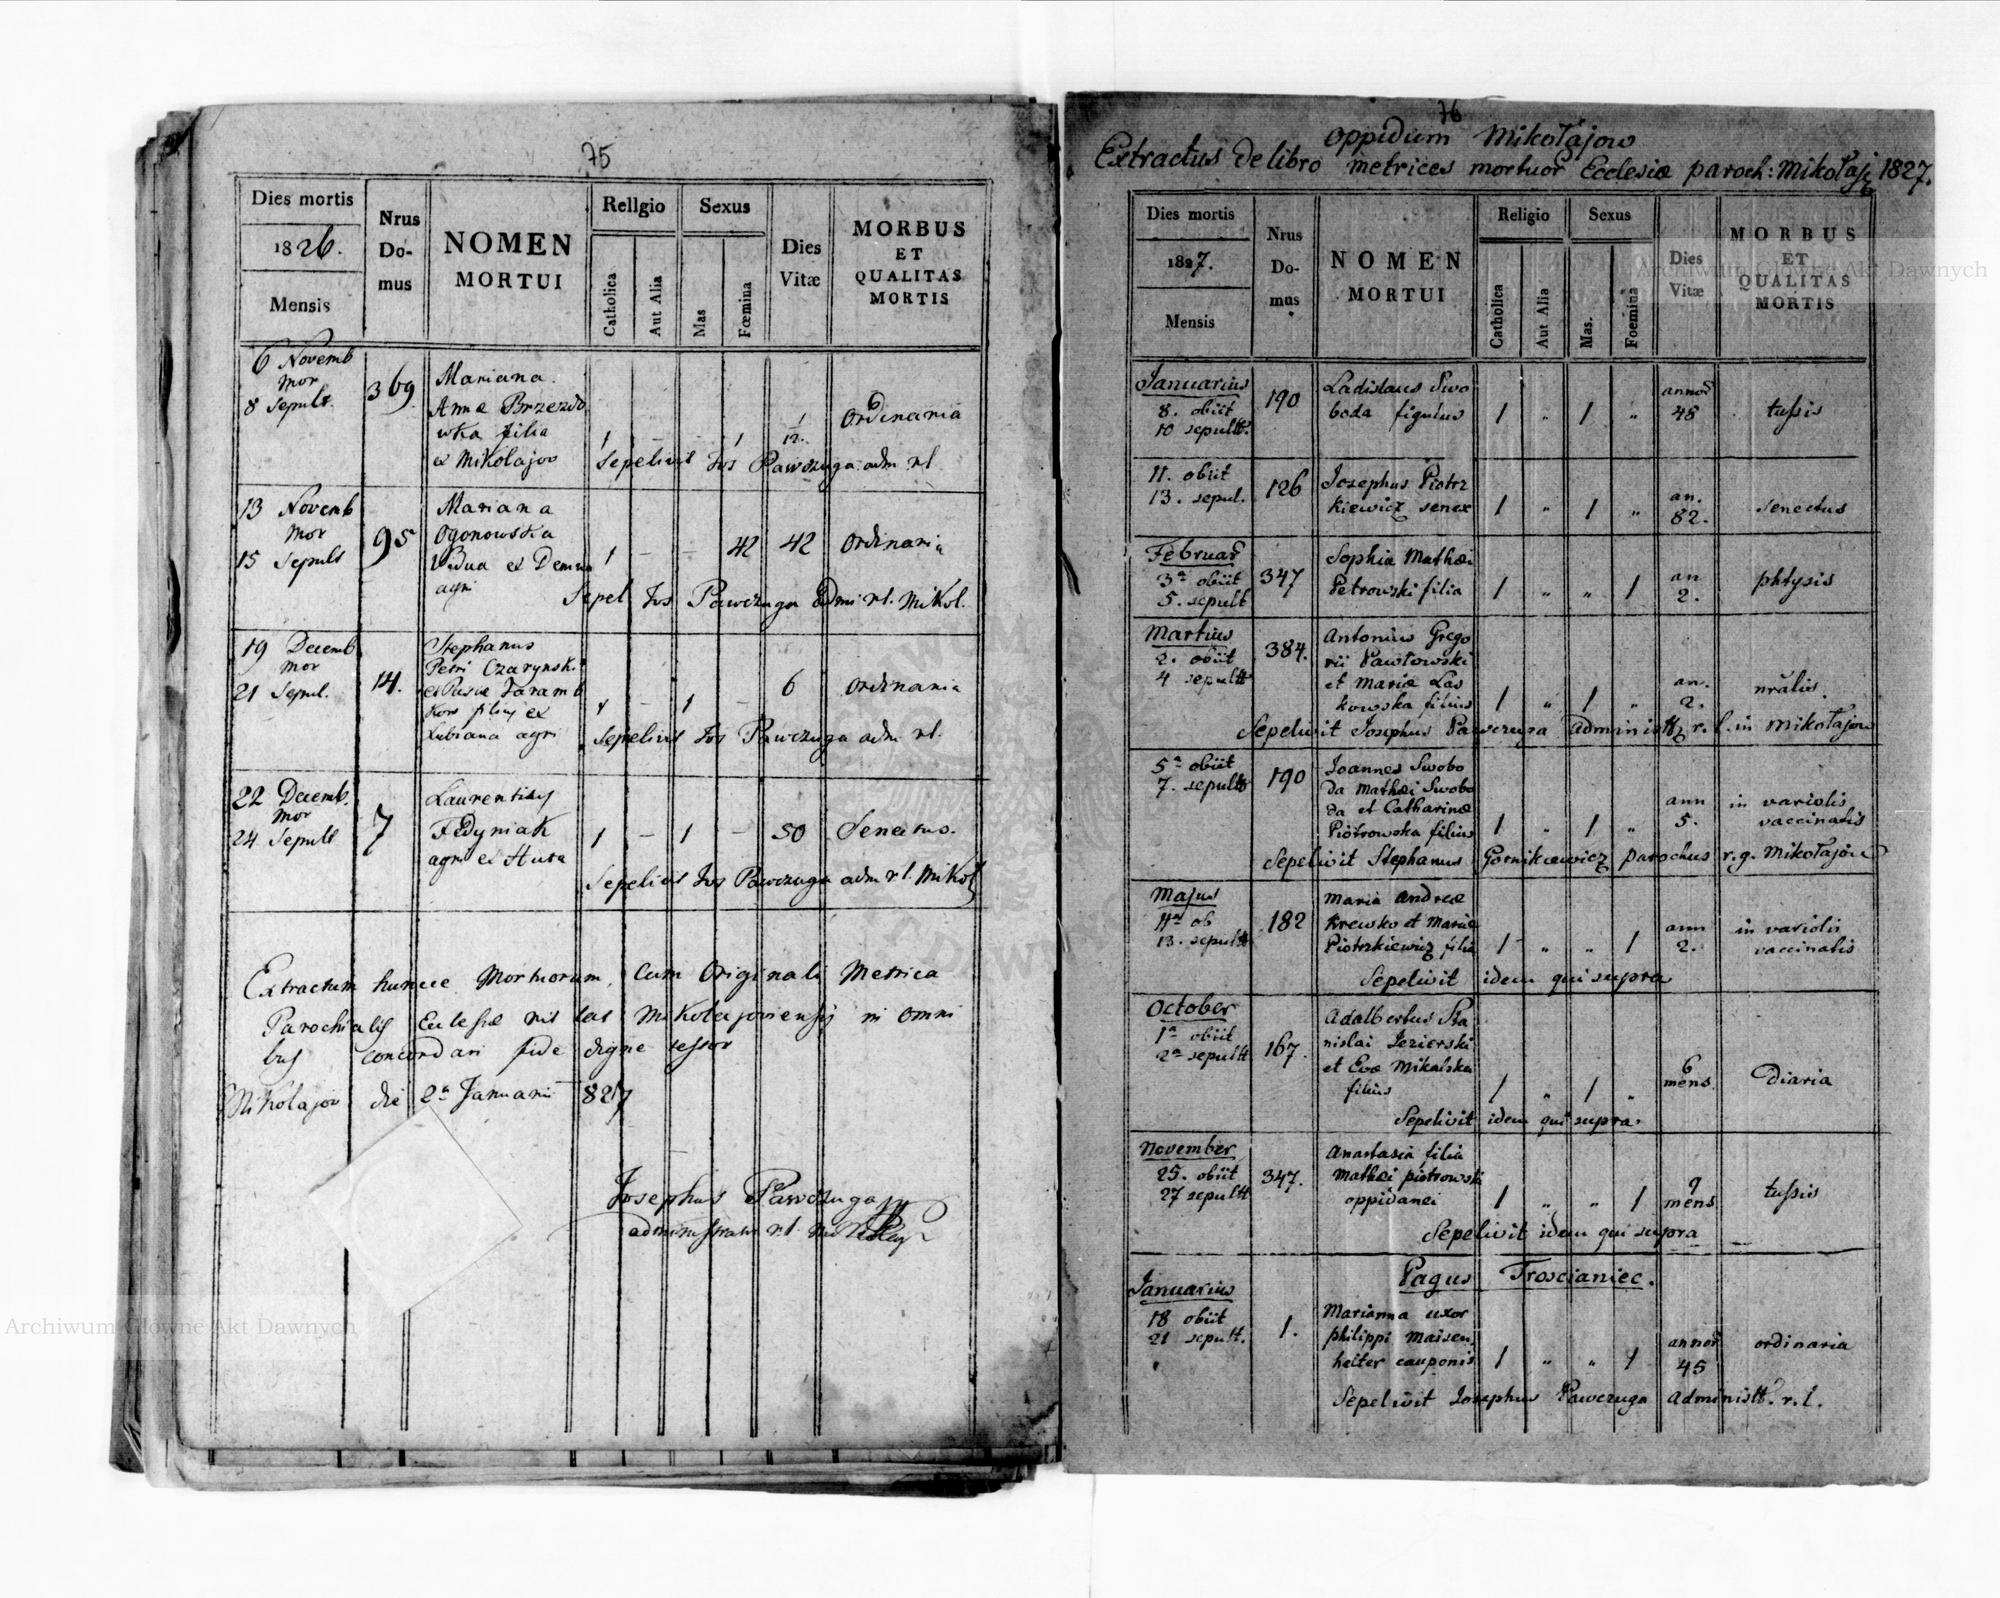 75
Dies mortis
1826.
Mensis
Nrus
Do-
mus
NOMEN
MORTUI
Religio
Catholica
Aut Alia
Sexus
Mas
Fœmina
Dies
Vitæ
MORBUS
ET
QUALITAS
MORTIS
6 Novemb
mor
8 Sepult.
369
Mariana
Annæ Brzezio
wka filia
ex Mikolajow
1 – – 1
1/12.
Ordinaria
Sepelivit Jos Pawczuga adm rl
13 Novemb
mor
15 Sepult
95
Mariana
Ogonowska
Vidua ex Demnia
agri
1 – – 42 42 Ordinaria
Sepel Jos Pawczuga Admi rl. Mikol.
19 Decemb
mor
21 Sepul.
14.
Stephanus
Petri Czarynsk.
filius ex
Lubiana agri
1 – 1 – 6 Ordinaria
Sepelivit Jos Pawczuga adm rl.
22 Decemb.
mor
24 Sepult
7
Laurentius
Fedyniak
agri ex Huta
1 – 1 – 50 Senectus.
Sepelivit Jos Pawczuga adm rl. Mikol
Extractum huncce Mortuorum, Cum Originali Metrica
Parochialis Eclesiæ rit lat Mikolajoviensis in omni
bus concordari fide digne testor
Mikolajow die 2a Januarii 827
Josephus Pawczuga
administrator rl.
76
Oppidum Mikołajow
Extractus de libro metrices mortuor Ecclesiæ paroch: Mikołaj 1827.
Dies mortis
1827.
Mensis
Nrus
Do-
mus
NOMEN
MORTUI
Religio
Catholica
Aut Alia
Sexus
Mas.
Foemina
Dies
Vitæ
MORBUS
ET
QUALITAS
MORTIS
Januarius
8. obiit
10 sepult.
190
Ladislaus Swo
boda figulus
1 „ 1 „
annor
48
tussis
11. obiit
13. sepul.
126
Josephus Piotrz
kiewicz senex
1 „ 1 „
an.
82.
senectus
Februar
3a obiit
5. sepult
347
Sophia Mathæi
Petrowski filia
1 „ „ 1
an
2.
phtysis
Martius
2. obiit
4 sepult
384.
Antonius Grego
rii Pawłowski
et Mariæ Las
kowska filius
1 „ 1 „
an.
2.
nrălis.
Sepelivit Josephus Pawczuga Administr r. l. in Mikołajow
5a obiit
7. sepult
190
Joannes Swobo
da Mathæi Swobo
da et Catharinæ
Piotrowska filius
1 „ 1 „
ann
5.
in variolis
vaccinatis
Sepelivit Stephanus Gornikiewicz parochus r.g. Mikołajow
Majus
11a ob
13. sepult
182
Maria Andreæ
Krewko et Mariæ
Piotrzkiewicz filia
1 „ „ 1
ann
2.
in variolis
vaccinatis
Sepelivit idem qui supra
October
1a obiit
2a sepult
167.
Adalbertus Sta
nislai Jezierski
et Evæ Mikalska
filius
1 „ 1 „
6
mens
Diaria
Sepelivit idem qui supra
November
25. obiit
27 sepult
347.
Anastasia filia
Mathæi piotrowski
oppidanei
1 „ „ 1
9
mens
tussis
Sepelivit idem qui supra
Pagus Troscianiec.
Januarius
18 obiit
21 sepult.
1.
Marianna uxor
philippi Maisen
helter cauponis
1 „ „ 1
annor
45
ordinaria
Sepelivit Josephus Pawczuga Administr. r. l.
Archiwum Główne Akt Dawnych
Archiwum Główne Akt Dawnych